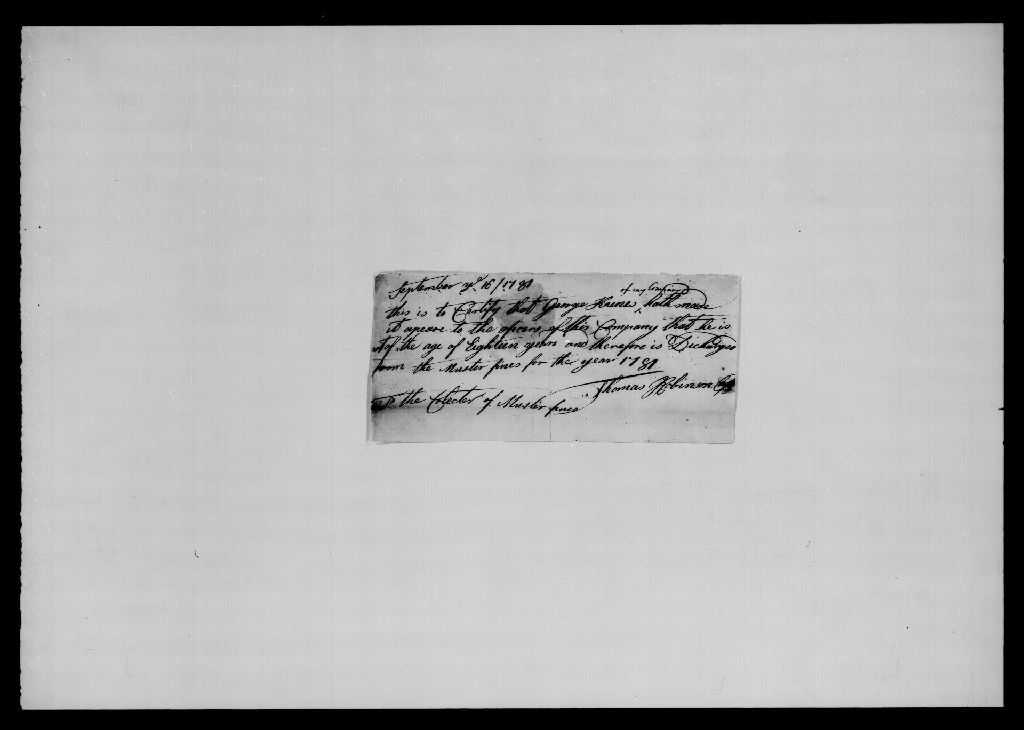 September ye 16/1781
of my Company
this is to Certify that George Knene hath made
it apeare to the oficers of this Company that he is
not of the age of Eighteen years and therefore is Discharged
from the Muster fines for the year 1781
Thomas Robinson Cpt
To the Colecter of Muster fines